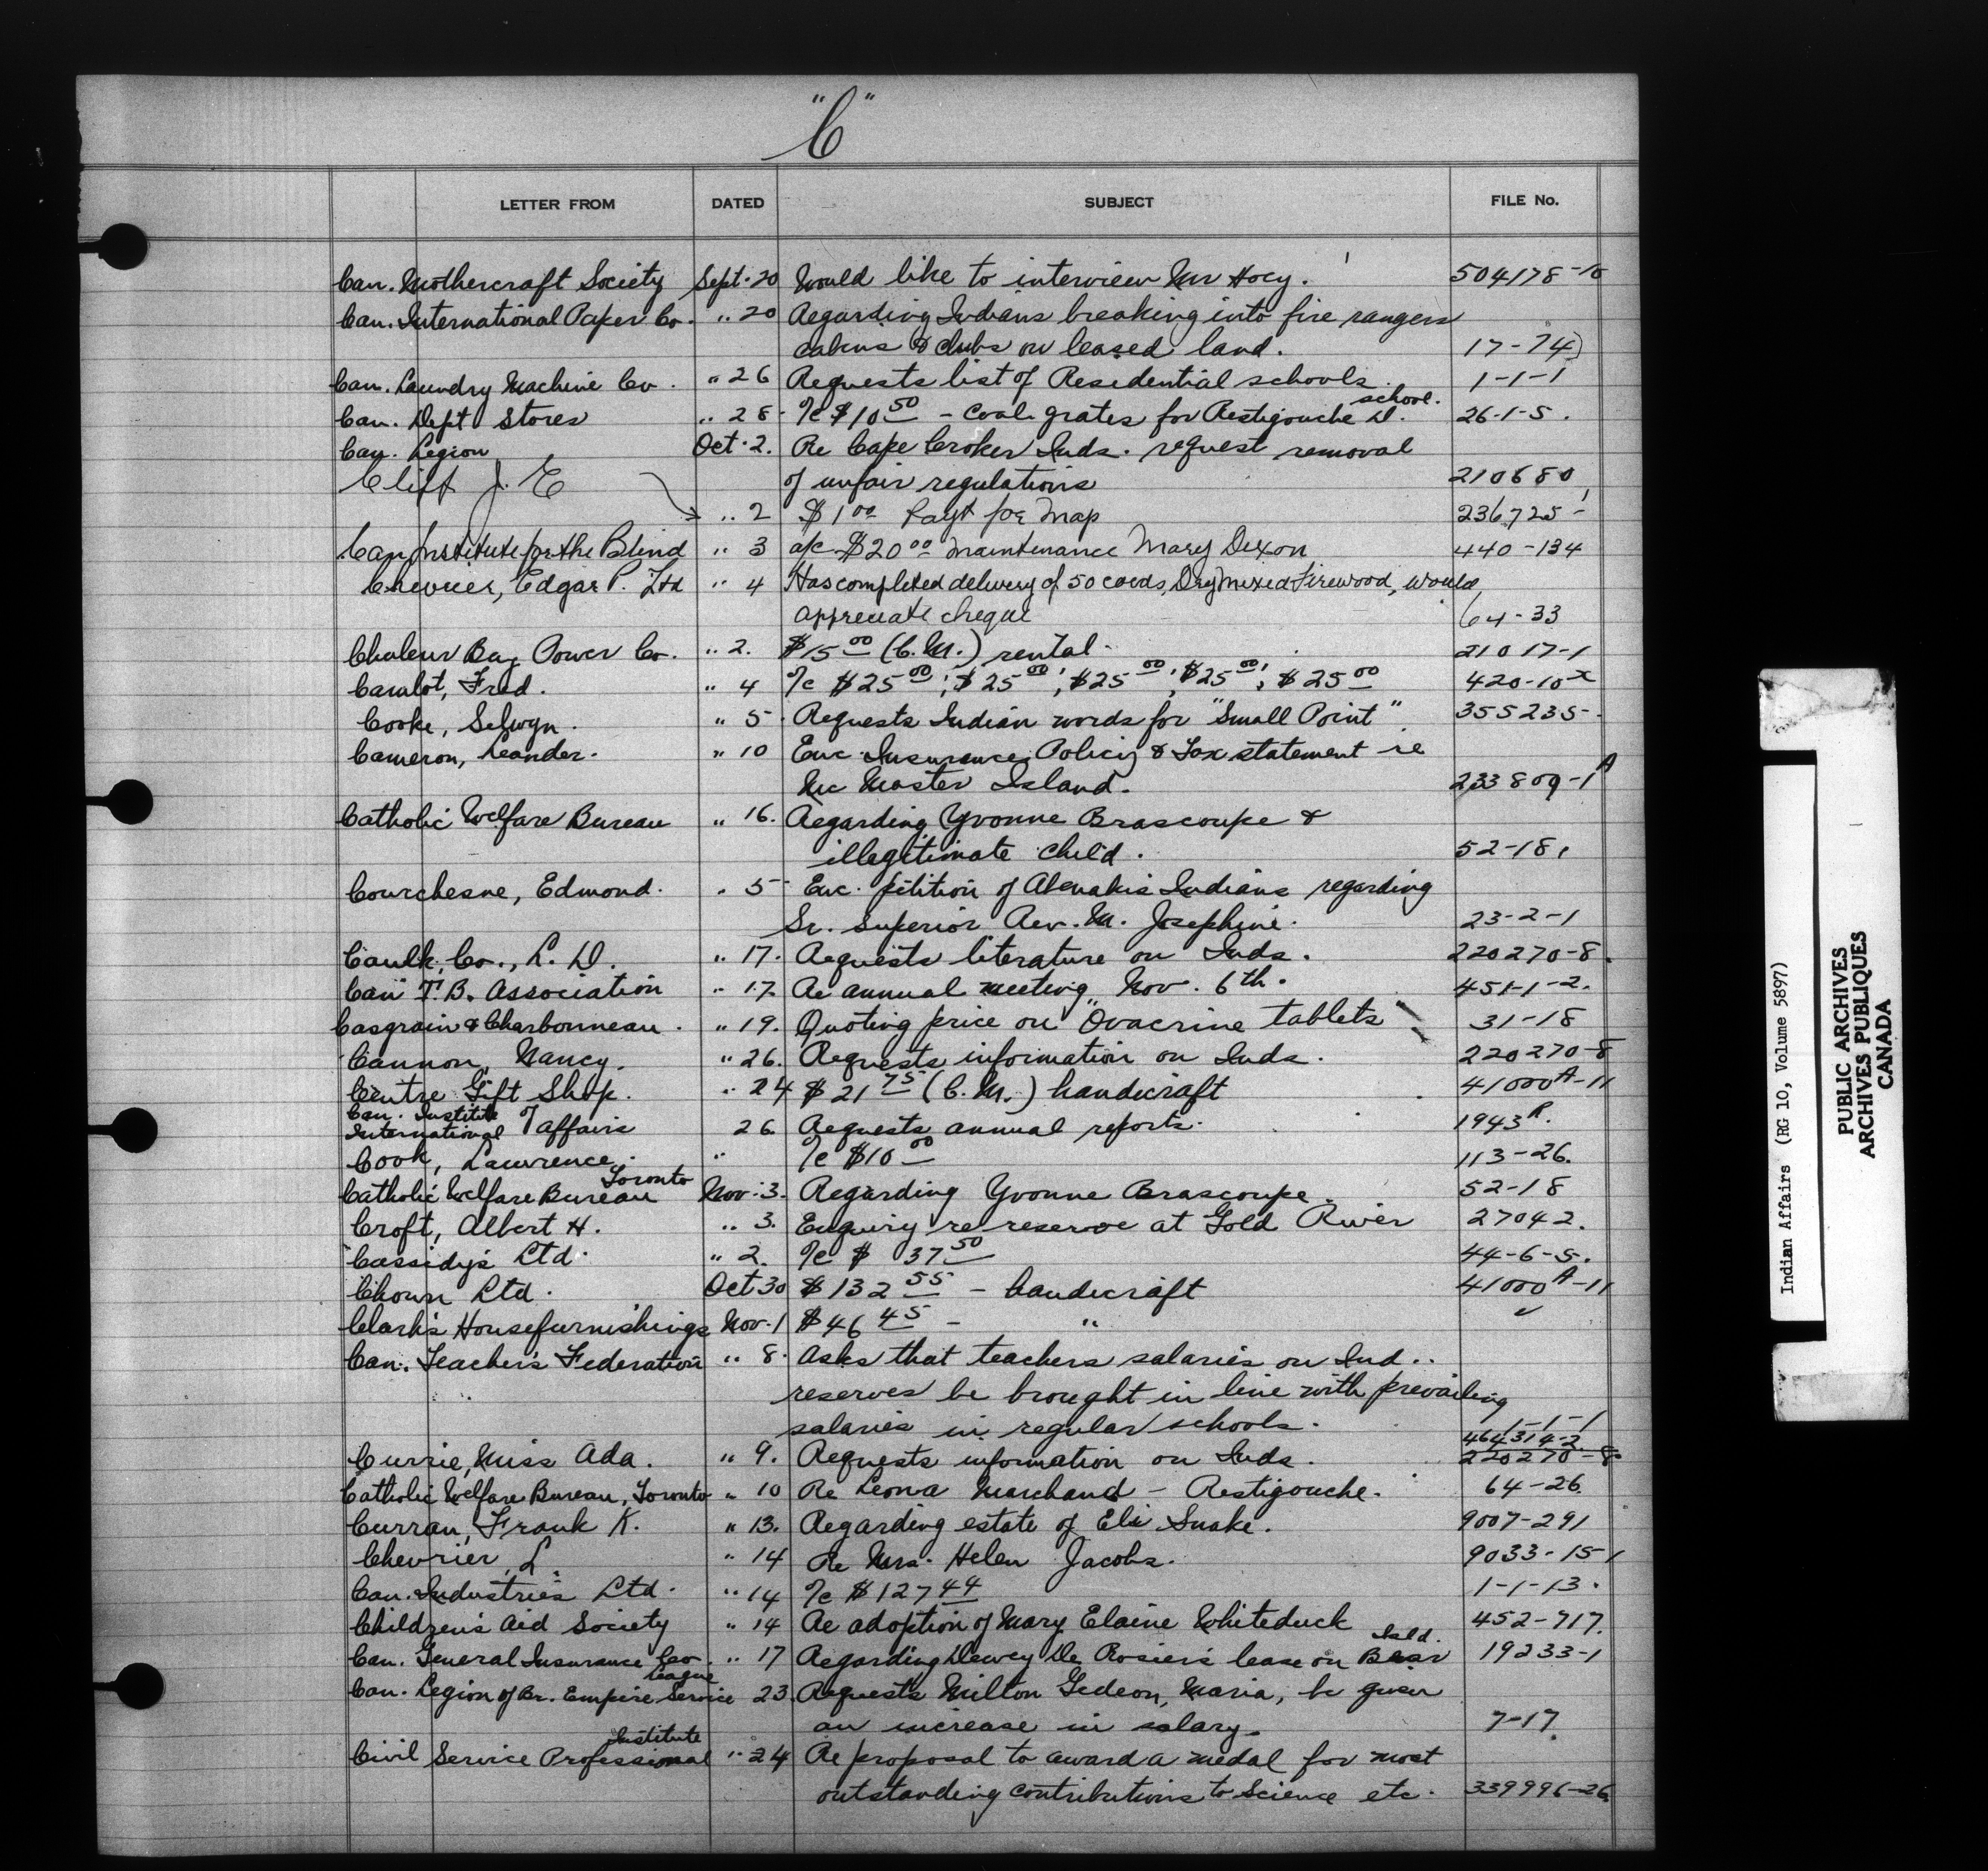 "C"
LETTER FROM DATED SUBJECT FILE No.
Can. Mothercraft Society Sept. 20 Would like to interview Mr Hoey. 504178-10
Can. International Paper Co. " 20 Regarding Indians breaking into fire rangers
cabins & clubs on leased land. 17-74
Can. Laundry Machine Co. " 26 Requests list of Residential schools. 1-1-1
Can. Dept Stores " 28 a/c $10.50 - coal grates for Restigouche D. school. 26-1-5.
Can. Legion Oct. 2. Re Cape Croker Inds. request removal
of unfair regulations 210680
Clift J. E " 2 $1.00 Payt for Map 236725-1
Can Institute for the Blind " 3 a/c $20.00 Maintenance Mary Dixon 440-134
Chevrier, Edgar P. Ltd " 4 Has completed delivery of 50 cords, Dry Mixed Firewood, would
appreciate cheque 64-33
Chaleur Bay Power Co. " 2. $15.00 (C.M.) rental. 21017-1
Carufot, Fred. " 4 a/c $25.00; $25.00; $25.00; $25.00; $25.00 420-10x
Cooke, Selwyn. " 5. Requests Indian words for "Small Point" 355235-
Cameron, Leander. " 10 Enc Insurance Policy & Tax statement re
Mc Master Island. 233809-1A
Catholic Welfare Bureau " 16. Regarding Yvonne Brascoupe &
illegitimate child. 52-18.
Courchesne, Edmond. " 5 Enc. petition of Abenakis Indians regarding
Sr. Superior Rev. M. Josephine. 23-2-1
Caulk, Co., L. D. " 17. Requests literature on Inds. 220270-8.
Can T.B. Association " 17. Re annual meeting Nov. 6th. 451-1-2.
Casgrain & Charbonneau. " 19. Quoting price on "Ovacrine tablets 31-18
Cannon, Nancy. " 26. Requests information on Inds. 220270-8
Centre Gift Shop. " 24 $21.75 (C.M.) handicraft 41000A-11
Can. Institute of
International affairs 26. Requests annual reports. 1943R.
Cook, Lawrence. " a/c $10.00 113-26.
Catholic Welfare Bureau Toronto Nov. 3. Regarding Yvonne Brascoupe. 52-18
Croft, Albert H. " 3. Enquiry re reserve at Gold River 27042.
Cassidy's Ltd. " 2. a/c $ 37.50 44-6-5.
Chown Ltd. Oct 30 $132.55 - handicraft 41000A-11
Clark's Housefurnishings Nov. 1 $46.45 - " ✓
Can. Teacher's Federation " 8. Asks that teachers salaries on Ind..
reserves be brought in line with prevailing
salaries in regular schools. 1-1-1
464314-2.
Currie, Miss Ada. " 9. Requests information on Inds. 220270-8.
Catholic Welfare Bureau, Toronto " 10 Re Leona Marchand - Restigouche. 64-26.
Curran, Frank K. " 13. Regarding estate of Eli Snake. 9007-291
Chevrier, L. " 14 Re Mrs. Helen Jacobs. 9033-15-1
Can. Industries Ltd. " 14 a/c $127.44 1-1-13.
Children's Aid Society " 14 Re adoption of Mary Elaine Whiteduck 452-717.
Can. General Insurance Co. " 17 Regarding Dewey De Rosier's lease on Bear Isld. 19233-1
Can. Legion of Br. Empire Service League 23. Requests Milton Gedeon, Maria, be given
an increase in salary. 7-17.
Civil Service Professional Institute " 24 Re proposal to award a medal for most
outstanding contributions to Science etc. 339996-26
Indian Affairs (RG 10, Volume 5897)
PUBLIC ARCHIVES
ARCHIVES PUBLIQUES
CANADA